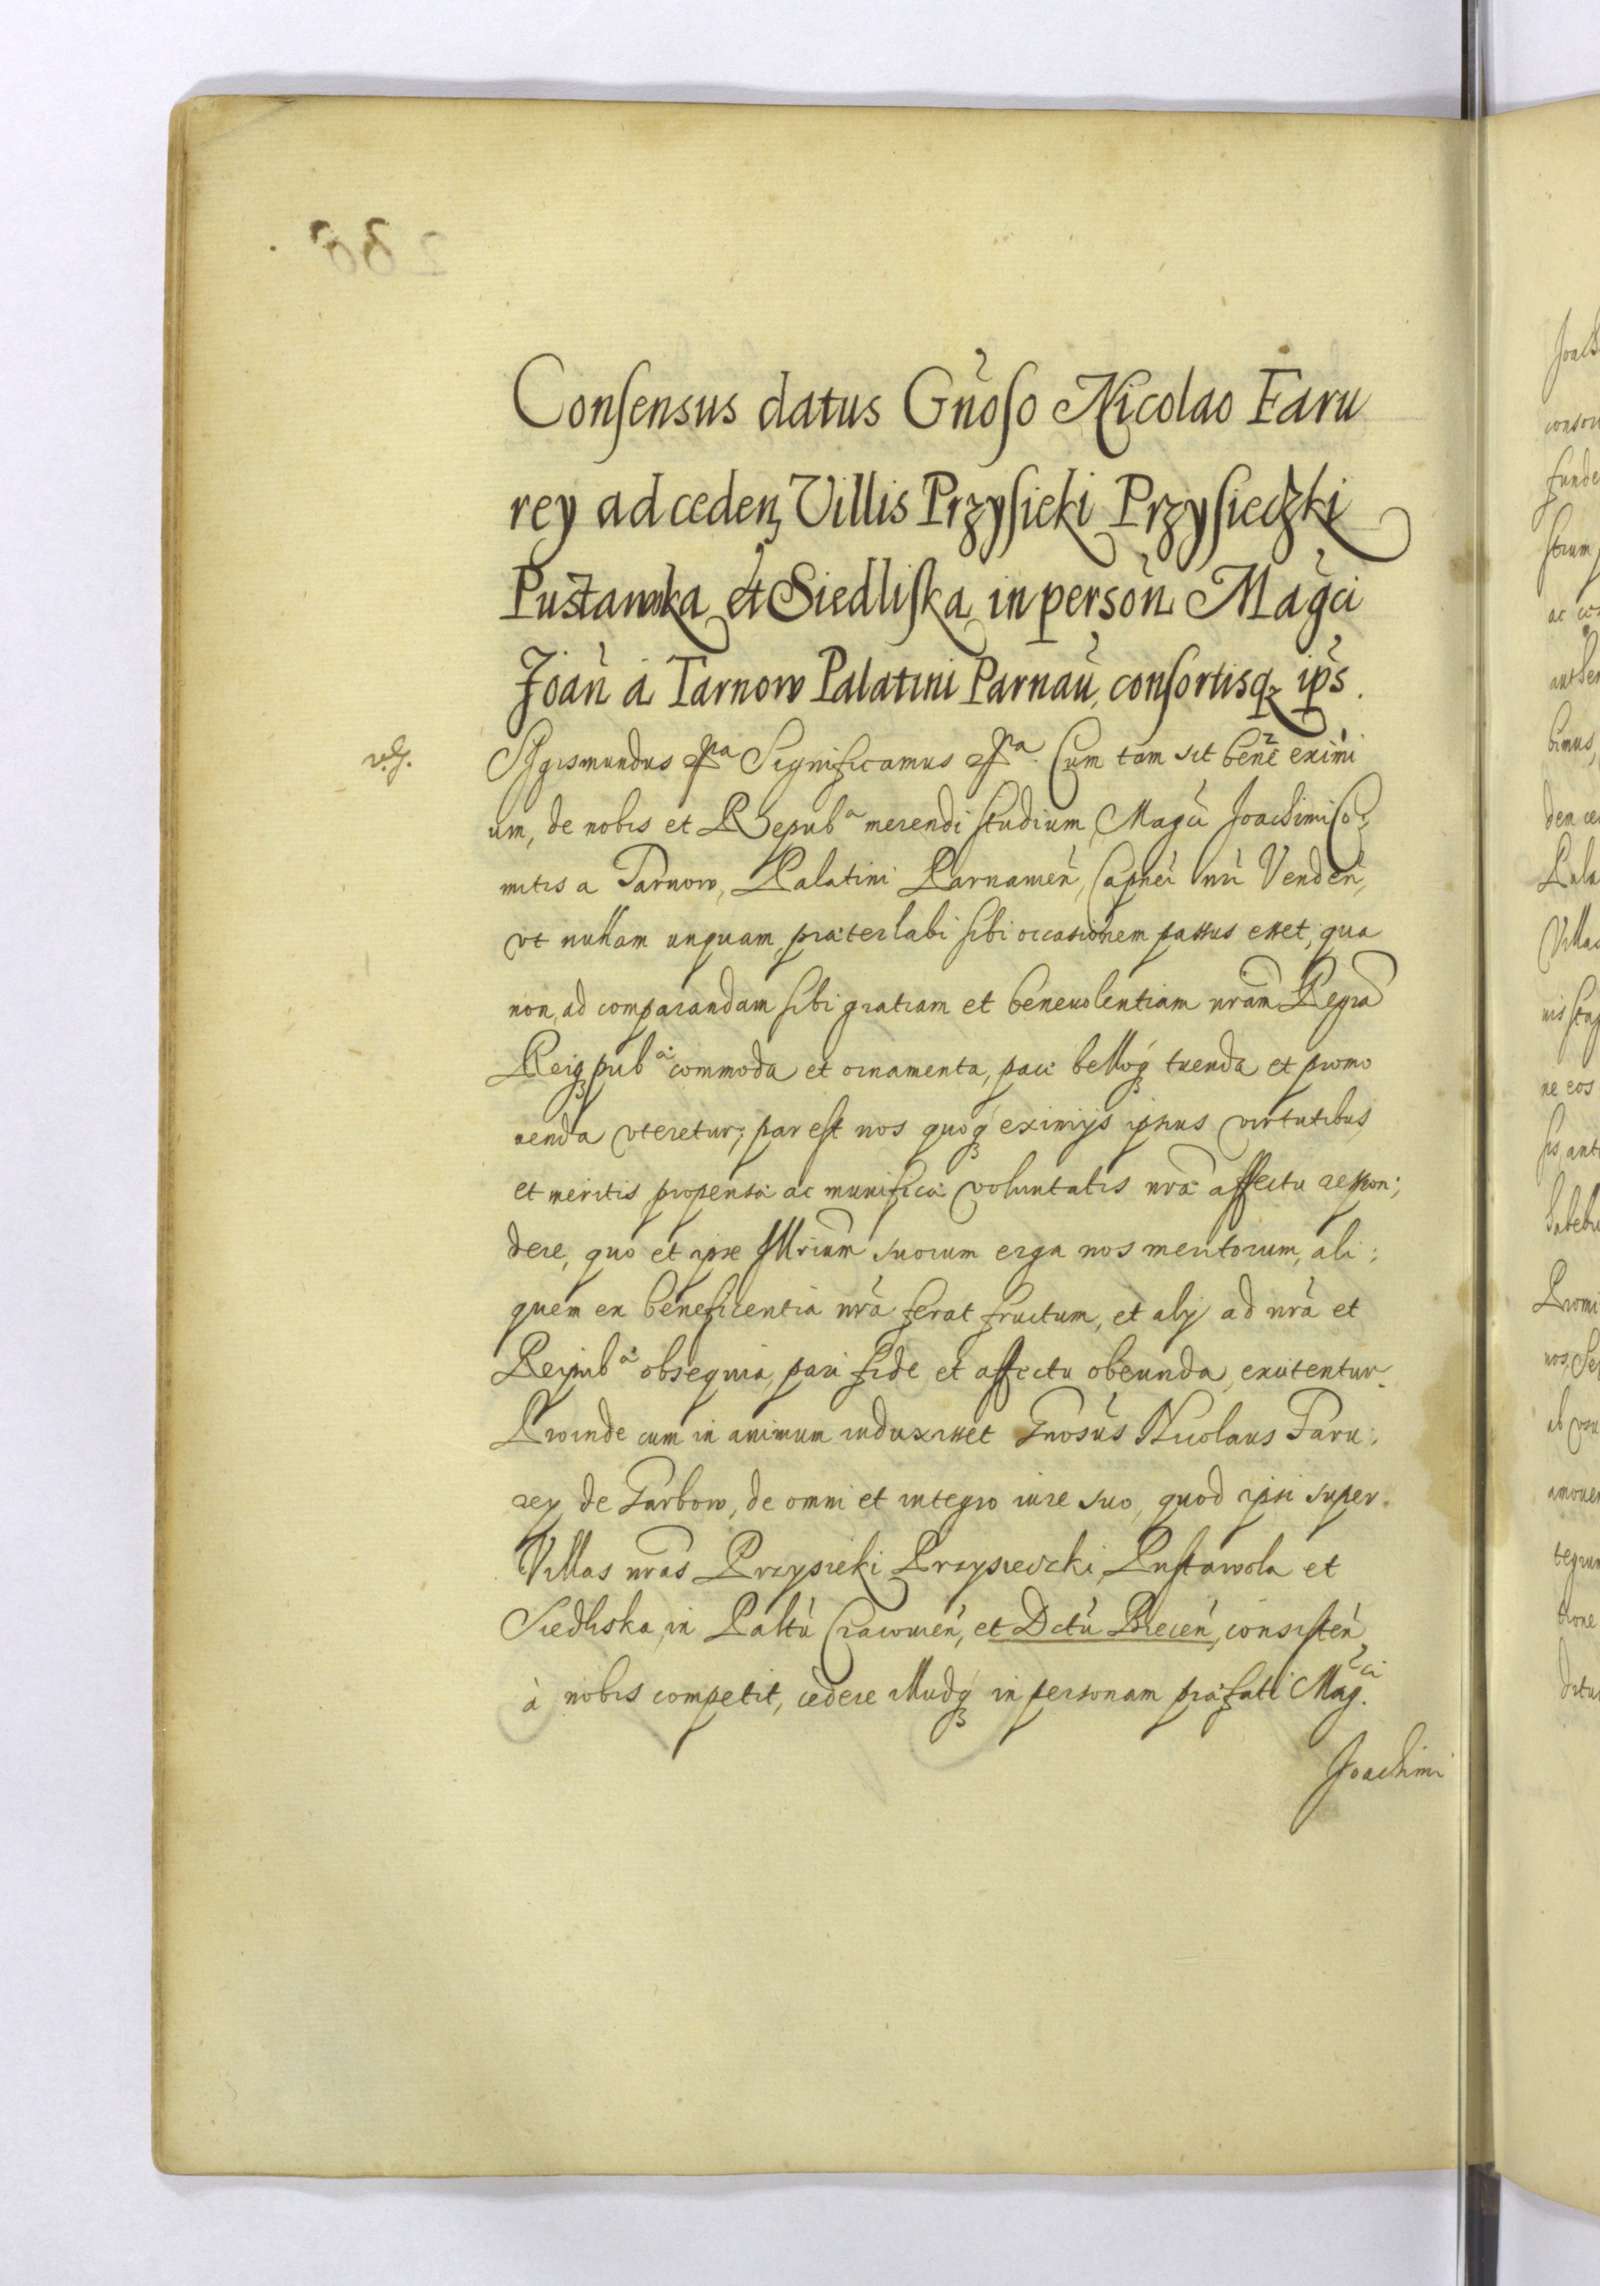 Consensus datus Gnoso Nicolao Taru
rey ad ceden Villis Przysieki Przysieczki
Pustawola et Siedliska in person Magci
Joan à Tarnow Palatini Parnau, consortisq ips.
Sigismundus Significamus Cum tam sit bene eximi
um, de nobis et Repub^a merendi studium, Magci Joachimi Co:
mitis a Tarnow, Palatini Parnawien, Capnei nri Venden,
vt nullam unquam præterlabi sibi occasionem passus esset, qua
non, ad comparandam sibi gratiam et beneuolentiam nram Regia
Reiq pub^æ commoda et ornamenta, pace belloq tuenda et promo
uenda vteretur; par est nos quoq eximijs ipsius virtutibus
et meritis propensæ ac munificæ voluntatis nræ affectu respon:
dere, quo et ipse Illrium suorum erga nos meritorum, ali:
quem ex beneficentia nra ferat fructum, et alij ad nra et
Reipub^æ obsequia, pari fide et affectu obeunda, excitentur.
Proinde cum in animum induxisset Gnosus Nicolaus Taru:
rey de Garbow, de omni et integro iure suo, quod ipsi super
Villas nras Przysieki Przysieczki, Pustawola et
Siedliska, in Paltu Cracouien, et Dctu Biecen, consisten,
à nobis competit, cedere illudq in personam præfati Mag^ci
Joachimi